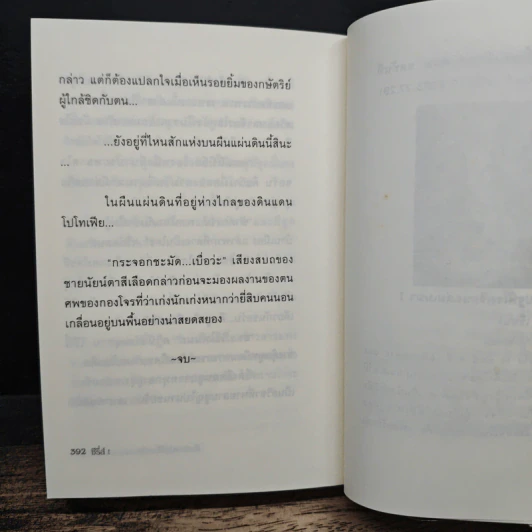 กล่าว แต่ก็ต้องแปลกใจเมื่อเห็นรอยยิ้มของกษัตริย์
ผู้ใกล้ชิดกับตน...
...ยังอยู่ที่ไหนสักแห่งบนผืนแผ่นดินนี้สินะ
...
ในผืนแผ่นดินที่อยู่ห่างไกลของดินแดน
โปโทเฟีย...
“กระจอกชะมัด...เบื่อว่ะ” เสียงสบถของ
ชายนัยน์ตาสีเลือดกล่าวก่อนจะมองผลงานของตน
ศพของกองโจรที่ว่าเก่งนักเก่งหนากว่ายี่สิบคนนอน
เกลื่อนอยู่บนพื้นอย่างน่าสยดสยอง
~จบ~
392